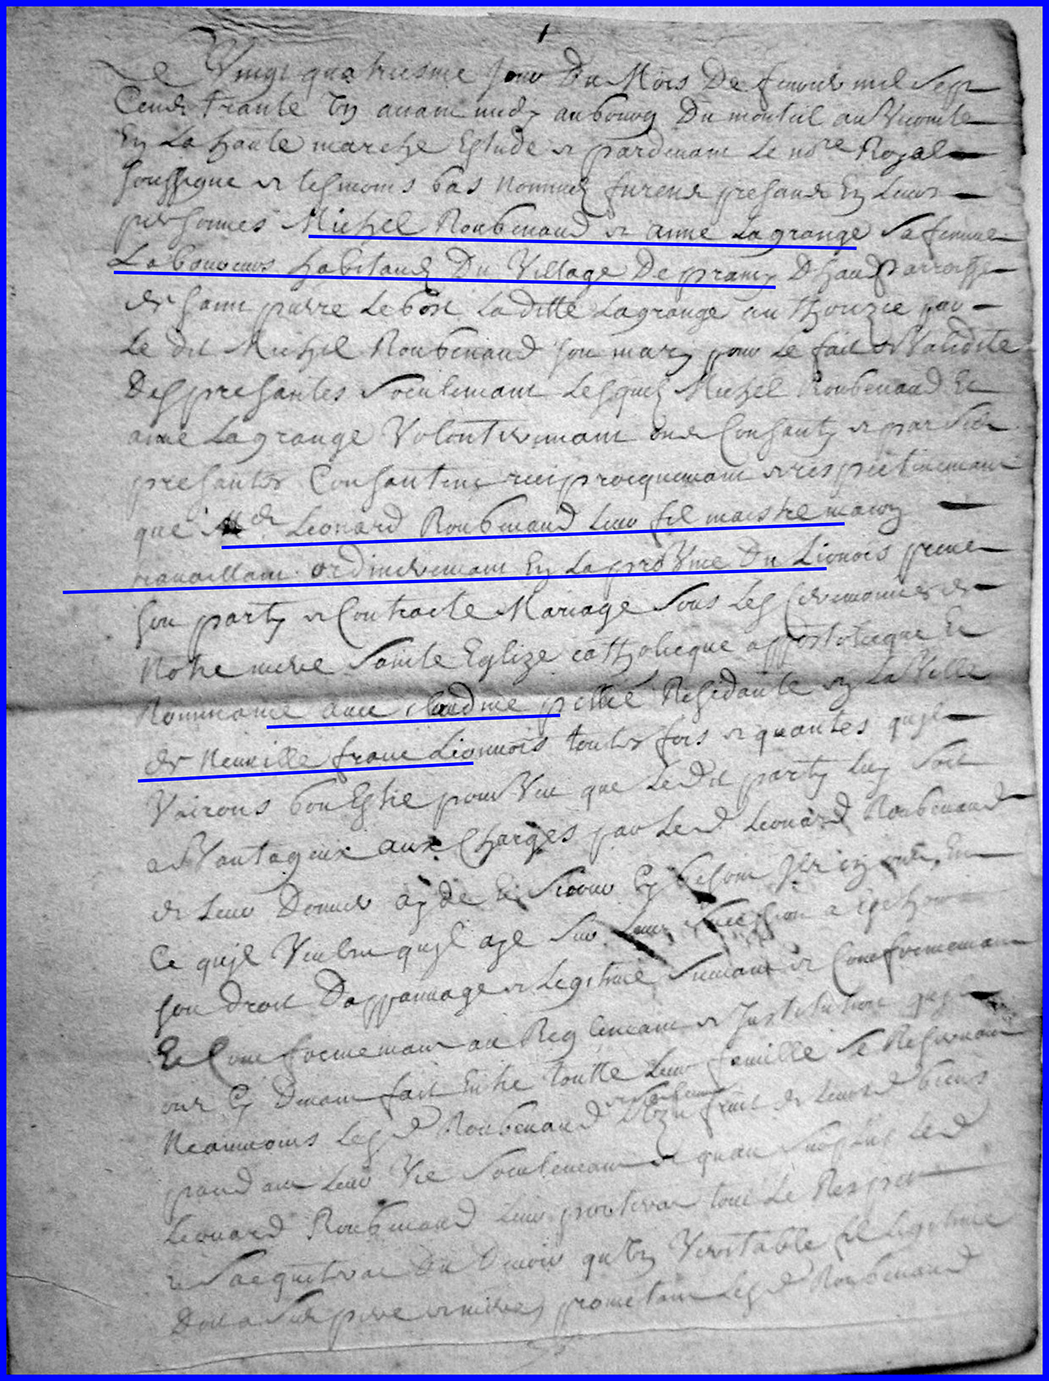 Le Vingt quatriesme jour Du Mois De fevrier mil Sept
Cens trante Un avant midy au bourg Du monteil au Vicomte
En La haute marche Estude et pardevant Le no.re Royal
soussigne et tesmoins bas nommes furent presans En Leurs
personnes Michel Roubenaud et anne Lagrange Sa femme
Laboureurs habitans Du Village De
de saint pierre Le bost Laditte Lagrange authorizée par
Le dit Michel Roubenaud son mary pour Le fait et Validité
Des presantes Seulement Lesquels Michel Roubenaud Et
anne Lagrange Volontairement ont Consanty et par Ses
presantes Consantent reciproquement et respectivement
que Leonard Roubenaud Leur fil maistre masson
travaillant ordinerement En La provine Du Lionois prene
son party et Contracte Mariage Sous Les Ceremonies de
Notre mere Sainte Eglize catholicque appostolicque Et
Rommaine avec claudine pellié Residante En La Ville
de Neuville franc Lionnois toutes fois et quantes quil
Vairons bon Estre pour Veu que Le Dit party Luy Soit
advantageux aux Charges par Led Leonard Roubenaud
de Leur Donner ayde Et Secour Sy besoin
Ce quil Veulent quil aye Sur Leur Succession a
son droit Dappannage et Legitime Suivant et Conformemant
Et Conformemant au Reglemant et Institution quils
ont Cy Devant fait Entre toutte Leur famille Se Reservant
Neanmoins Lesd Roubenaud fruit de Leurs d biens
pandant Leur Vie Seulement et quau Surplus Led
Leonard Roubenaud Leur portera tout Le Respet
et Sacquitera Du Devoir quUn Veritable fil Legitime
Doit a Ses pere et meres promettant Lesd Roubenaud